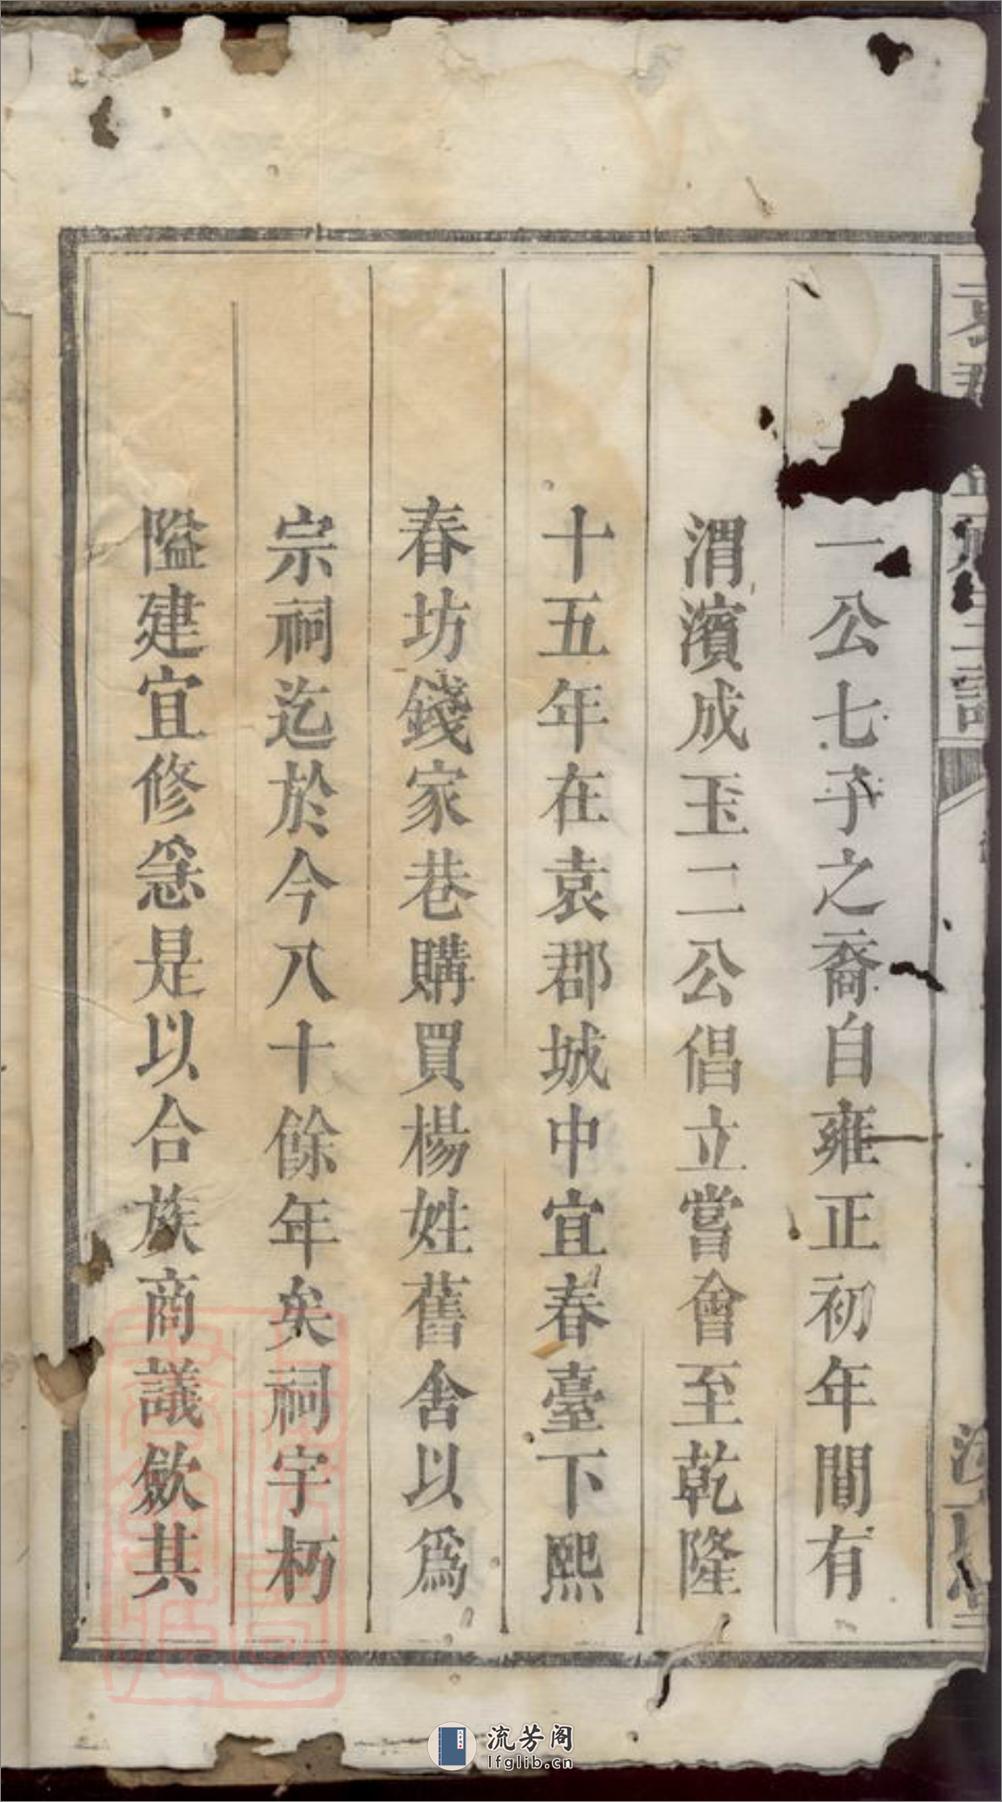 一公七子之裔自雍正初年間有
渭濱成玉二公倡立嘗會至乾隆
十五年在袁郡城中宜春臺下熙
春坊錢家巷購買楊姓舊舍以爲
宗祠迄於今八十餘年矣祠宇朽
隘建宜修急是以合族商議歛其
流芳阁
lfglib.cn